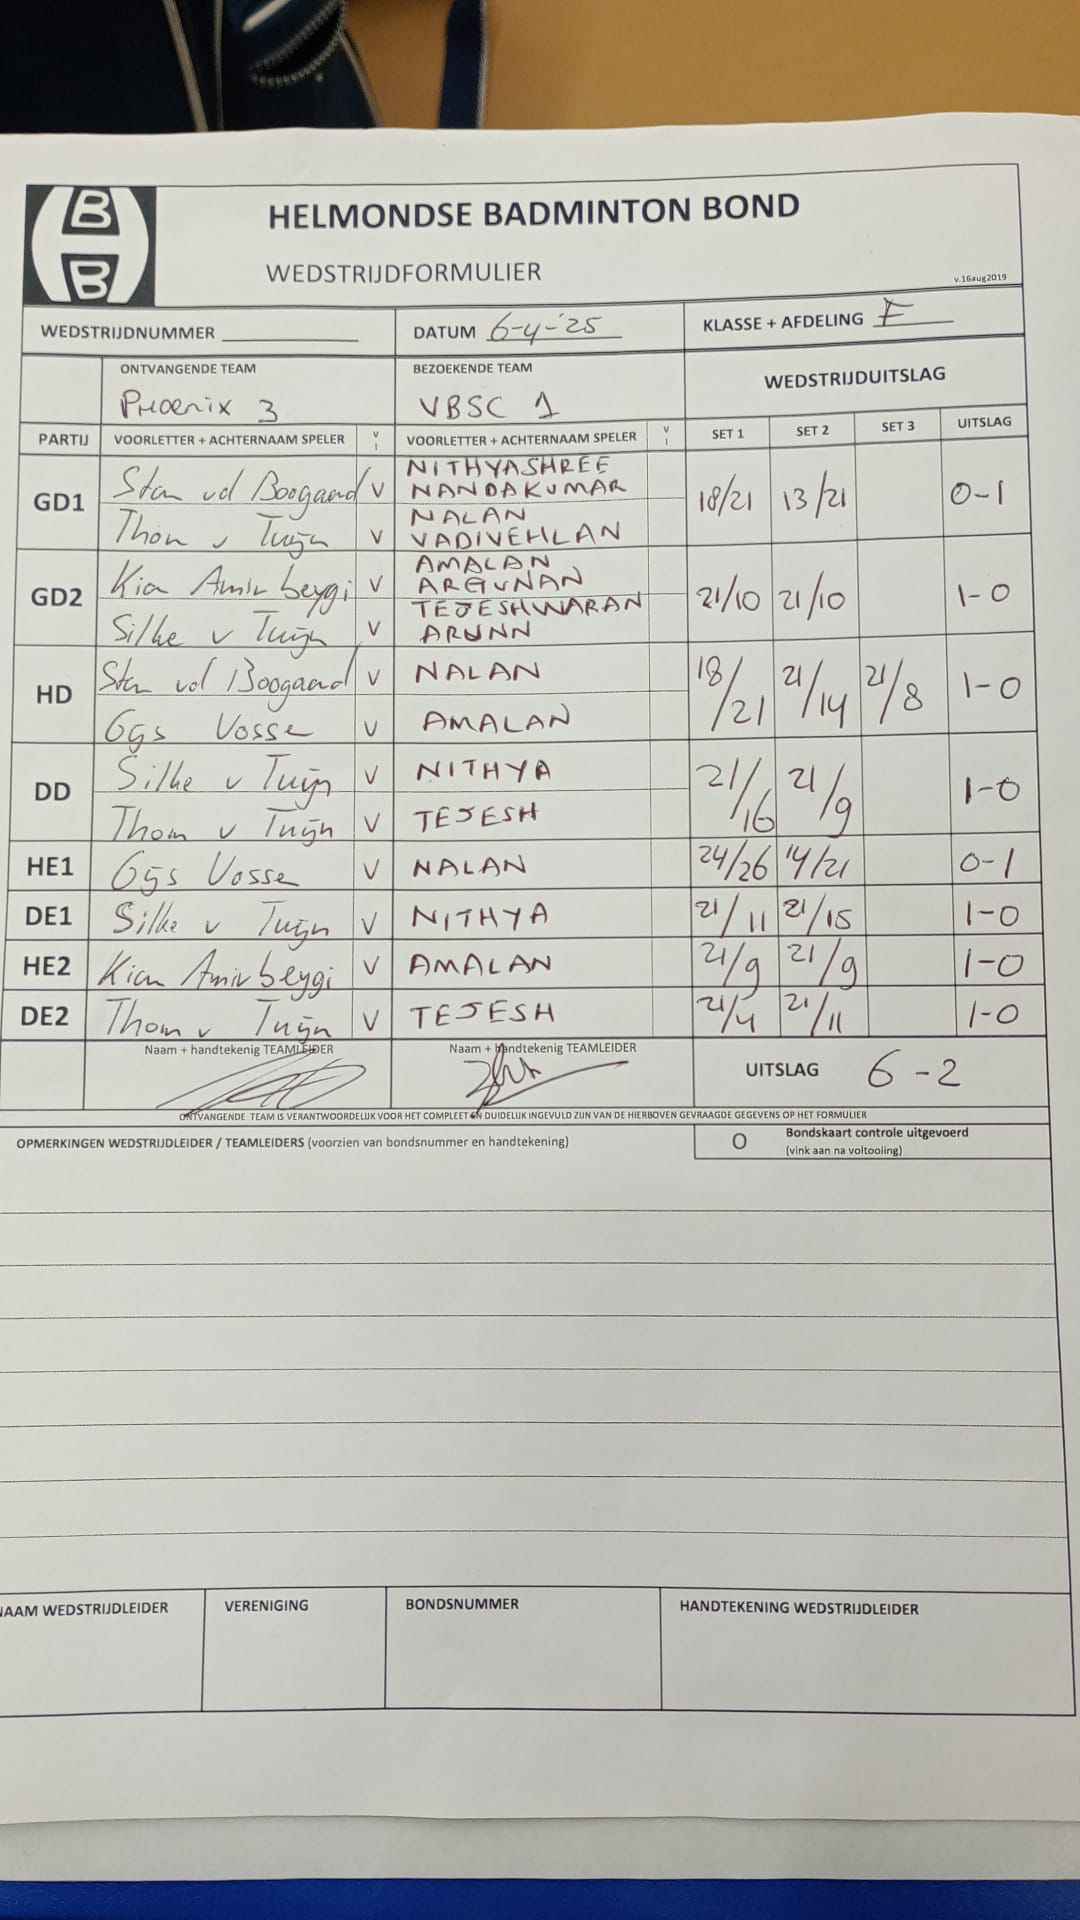 B
B
HELMONDSE BADMINTON BOND
WEDSTRIJDFORMULIER
v.16aug2019
WEDSTRIJDNUMMER DATUM 6-4-'25 KLASSE + AFDELING F
ONTVANGENDE TEAM BEZOEKENDE TEAM WEDSTRIJDUITSLAG
PHOENIX 3 VBSC 1
PARTIJ VOORLETTER + ACHTERNAAM SPELER V I VOORLETTER + ACHTERNAAM SPELER V I SET 1 SET 2 SET 3 UITSLAG
GD1 Stan vd Boogaard V NITHYASHREE NANDAKUMAR 18/21 13/21 0-1
Thom v Tuijn V NALAN VADIVEHLAN
GD2 Kian Amirbeygi V AMALAN ARGUNAN 21/10 21/10 1-0
Silke v Tuijn V TEJESHWARAN ARUNN
HD Stan vd Boogaard V NALAN 18/21 21/14 21/8 1-0
Gijs Vosse V AMALAN
DD Silke v Tuijn V NITHYA 21/16 21/9 1-0
Thom v Tuijn V TEJESH
HE1 Gijs Vosse V NALAN 24/26 14/21 0-1
DE1 Silke v Tuijn V NITHYA 21/11 21/15 1-0
HE2 Kian Amirbeygi V AMALAN 21/9 21/9 1-0
DE2 Thom v Tuijn V TEJESH 21/4 21/11 1-0
Naam + handtekenig TEAMLEIDER Naam + handtekenig TEAMLEIDER UITSLAG 6-2
ONTVANGENDE TEAM IS VERANTWOORDELIJK VOOR HET COMPLEET EN DUIDELIJK INGEVULD ZIJN VAN DE HIERBOVEN GEVRAAGDE GEGEVENS OP HET FORMULIER
OPMERKINGEN WEDSTRIJDLEIDER / TEAMLEIDERS (voorzien van bondsnummer en handtekening) O Bondskaart controle uitgevoerd
(vink aan na voltooiing)
NAAM WEDSTRIJDLEIDER VERENIGING BONDSNUMMER HANDTEKENING WEDSTRIJDLEIDER